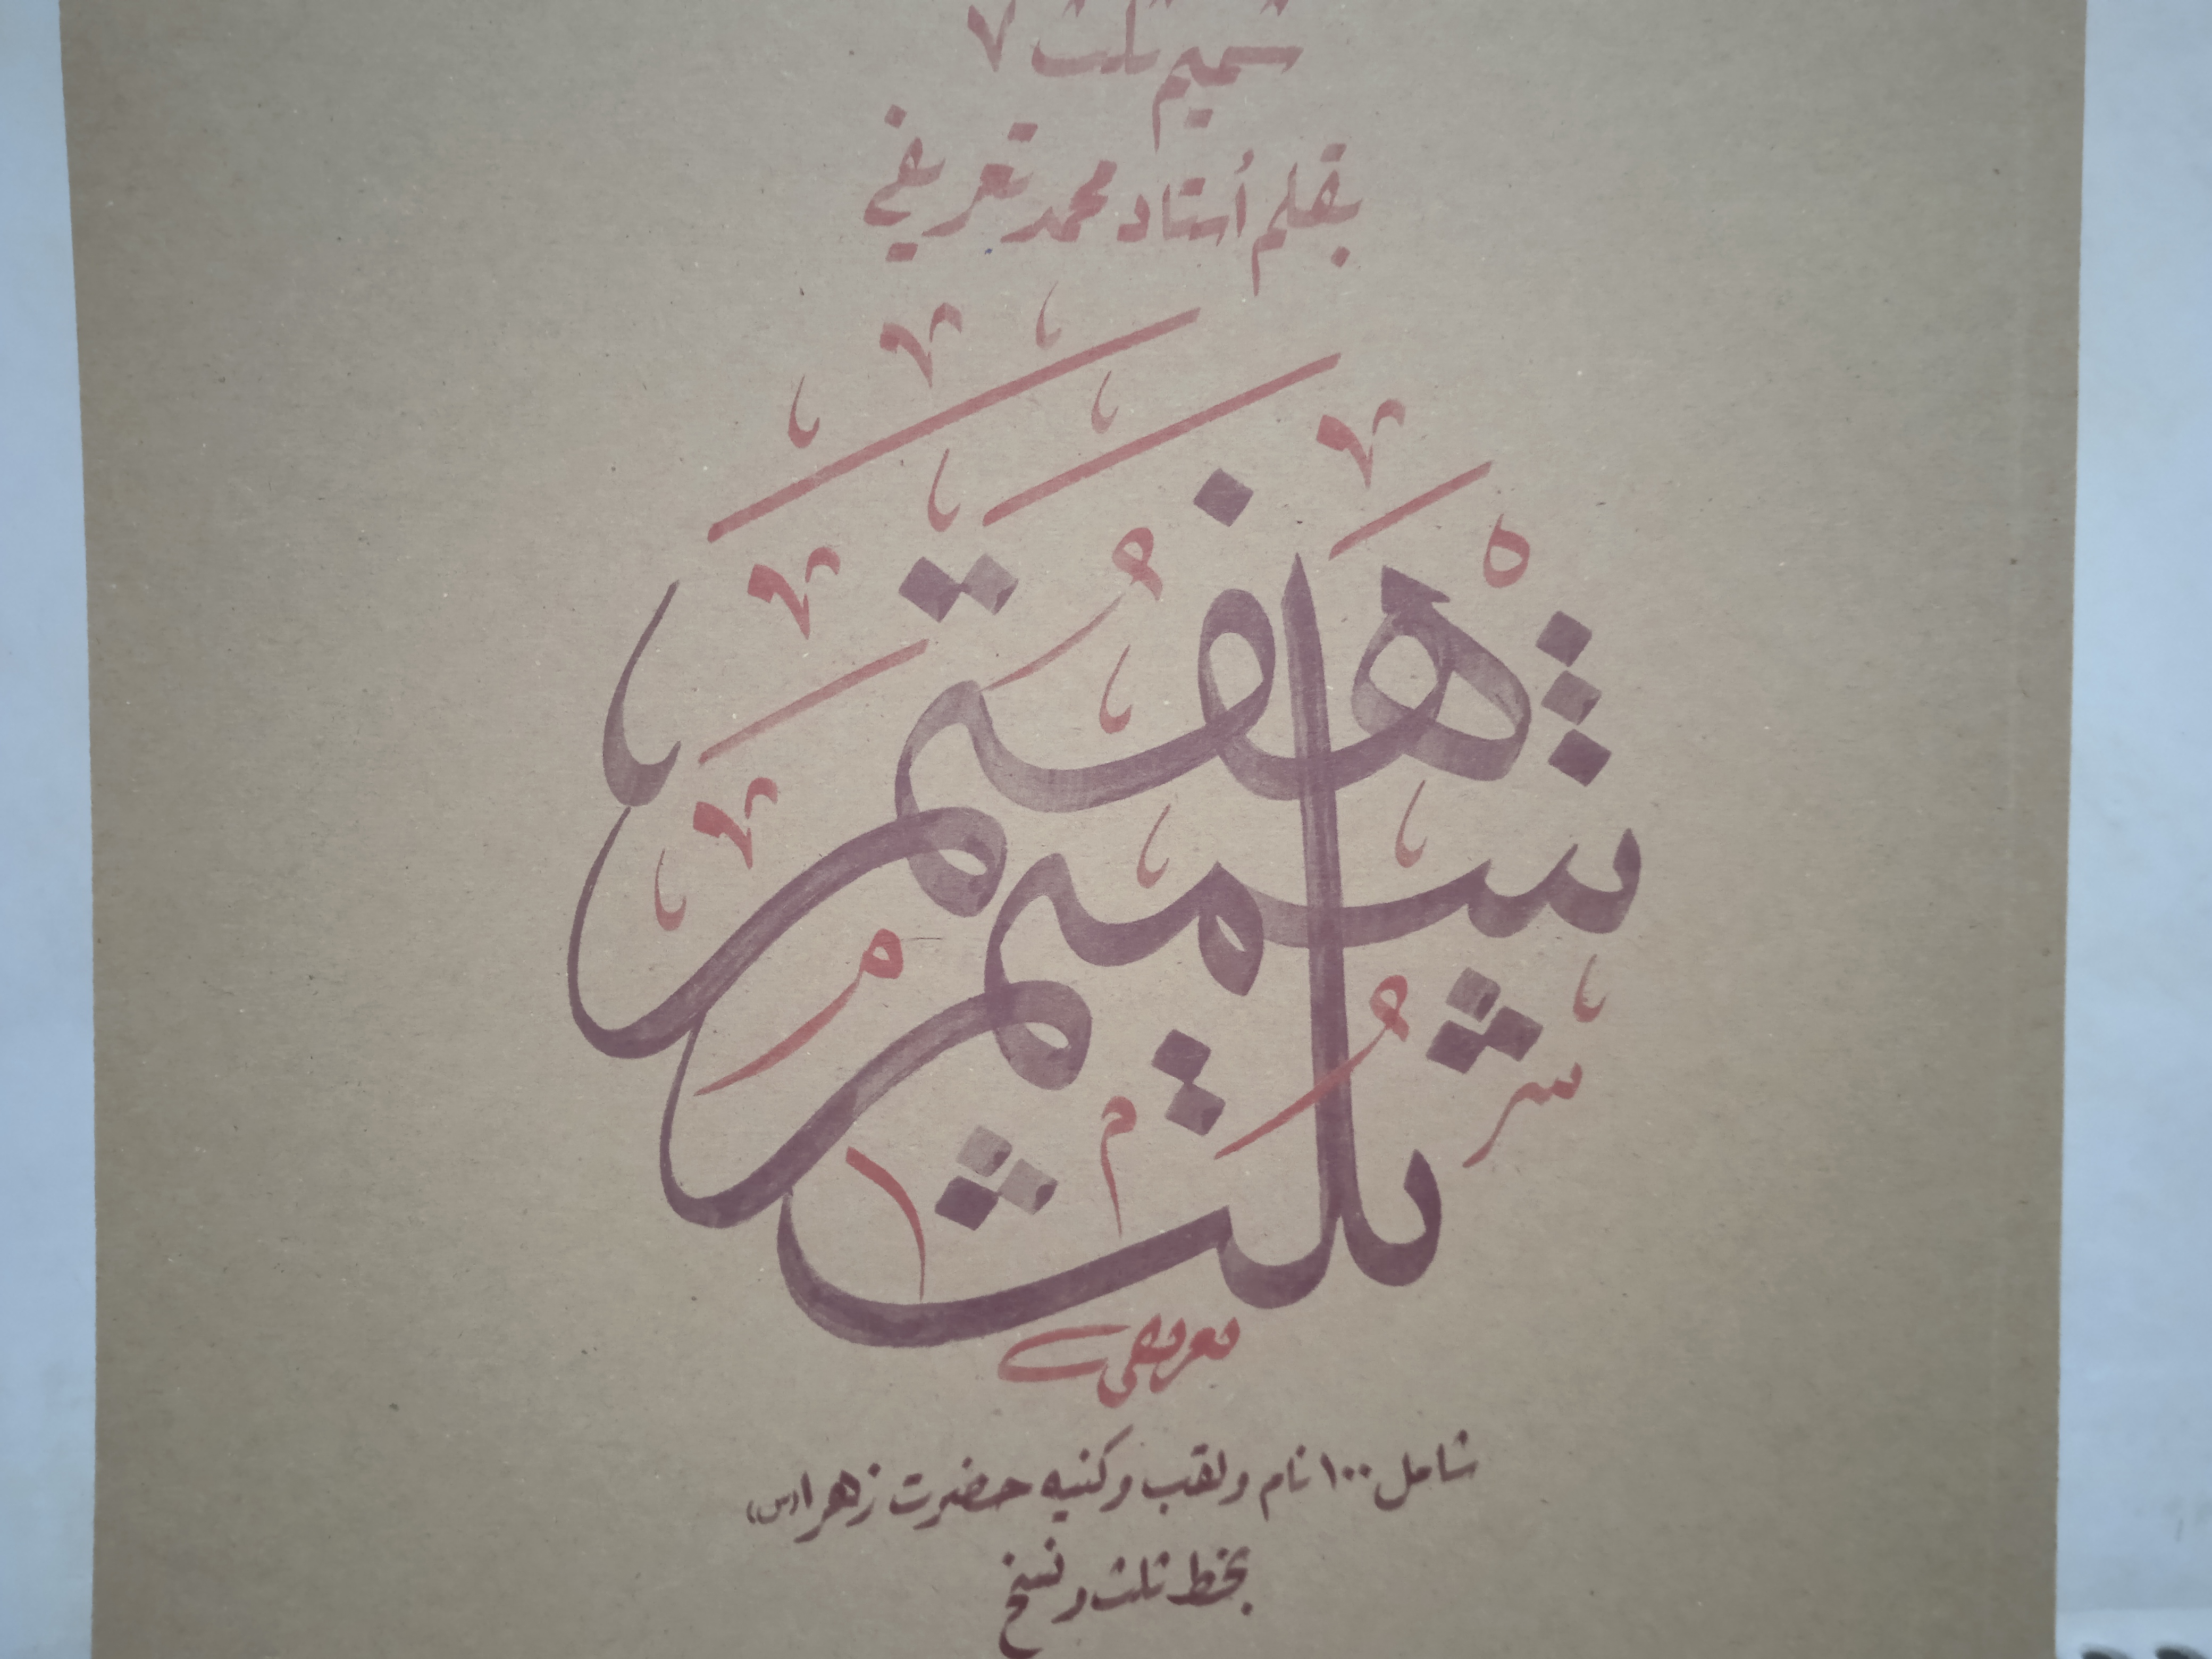 شمیم ثلث ۷
بقلم اُستاد محمد تعریفی
هفتم
شمیم
ثلث
تعریفی
شامل ۱۰۰ نام و لقب و کنیه حضرت زهرا (س)
بخط ثلث و نسخ